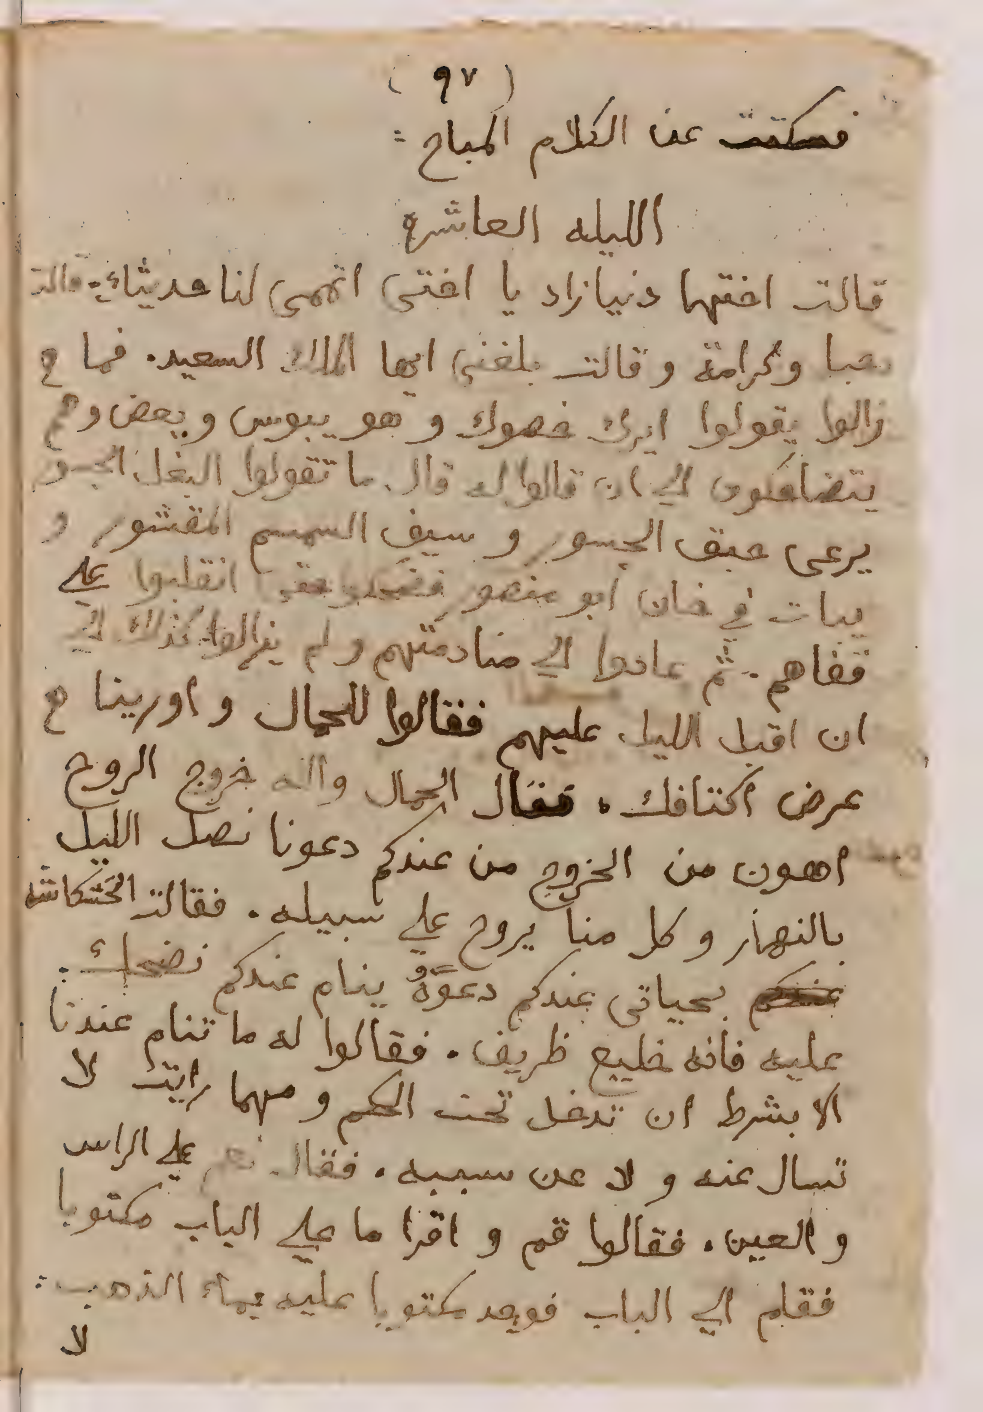 (٩٧)
فسكتت عن الكلام المباح :
الليله العاشره
قالت اختها دنيازاد يا اختى اتممى لنا حديثك. قالت
حبا وكرامة وقالت بلغنى ايها الملك السعيد. فما ح
زالوا يقولوا ايرك خصوك و هو يبوس و يعض و هم
يتضاحكون الي ان قالوا له قال ما تقولوا البغل الجسور
يرعى حبق الجسور و سيف السمسم المقشور و
يبات في خان ابو منصور فضحكوا حتى انقلبوا علي
قفاهم. ثم عادوا الي منادمتهم و لم يزالوا كذلك الي
ان اقبل الليل عليهم فقالوا للحمال و اورينا ح
عرض اكتافك. فقال الحمال والله خروج الروح
اهون من الخروج من عندكم دعونا نصل الليل
بالنهار و كل منا يروح علي سبيله. فقالت الخشكاشه
عندكم بحياتى عندكم دعوة ينام عندكم نضحك :
عليه فانه خليع ظريف. فقالوا له ما تنام عندنا
الا بشرط ان تدخل تحت الحكم و مهما رايت لا
تسال عنه و لا عن سببه. فقال نعم علي الراس
و العين. فقالوا قم و اقرا ما علي الباب مكتوبا
فقام الي الباب فوجد مكتوبا عليه بماء الذهب :
لا